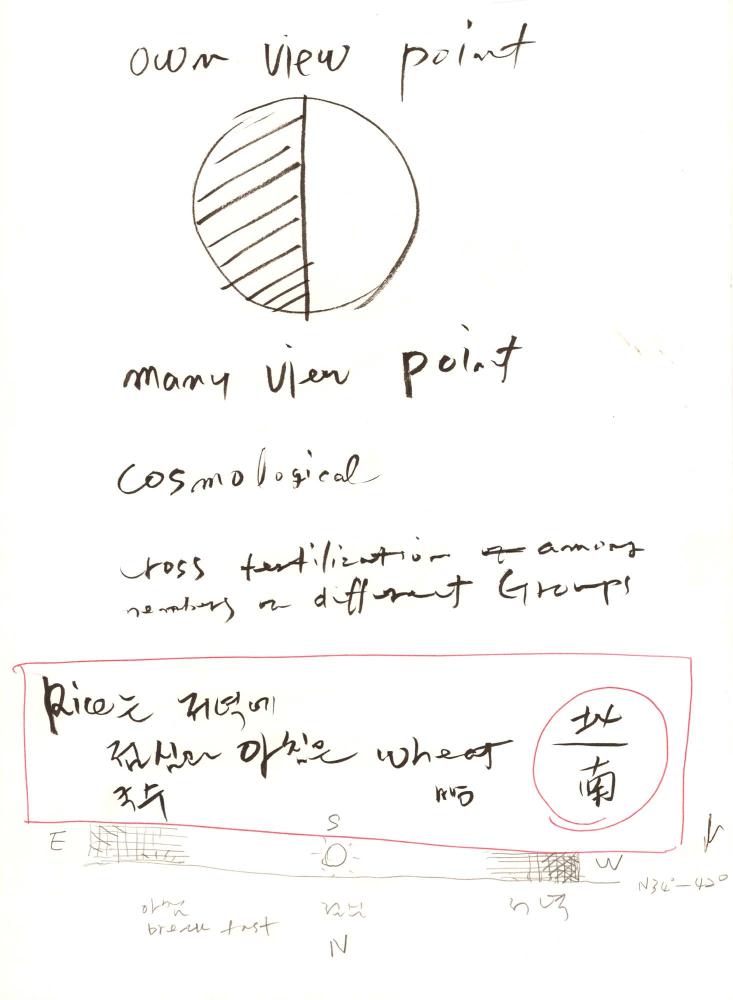 own view point
many view point
cosmological
cross fertilization of among
members on different Groups
Rice는 저녁에
점심과 아침은 wheat
국수 빵
北
南
E
S
W
N34°-42°
아침
점심
저녁
break fast
N